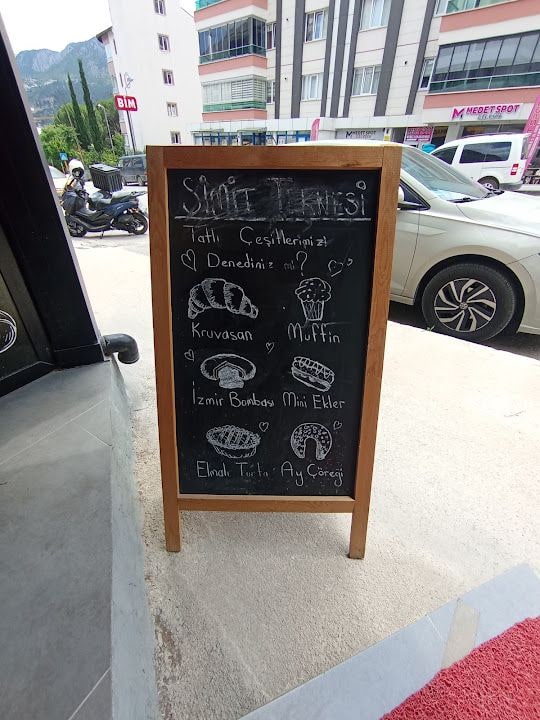 BİM
MEDETSPOT
MEDETSPOT
SİMİT TEKNESİ
Tatlı Çeşitlerimizi
Denediniz mi?
Kruvasan Muffin
İzmir Bombası Mini Ekler
Elmalı Turta Ay Çöreği